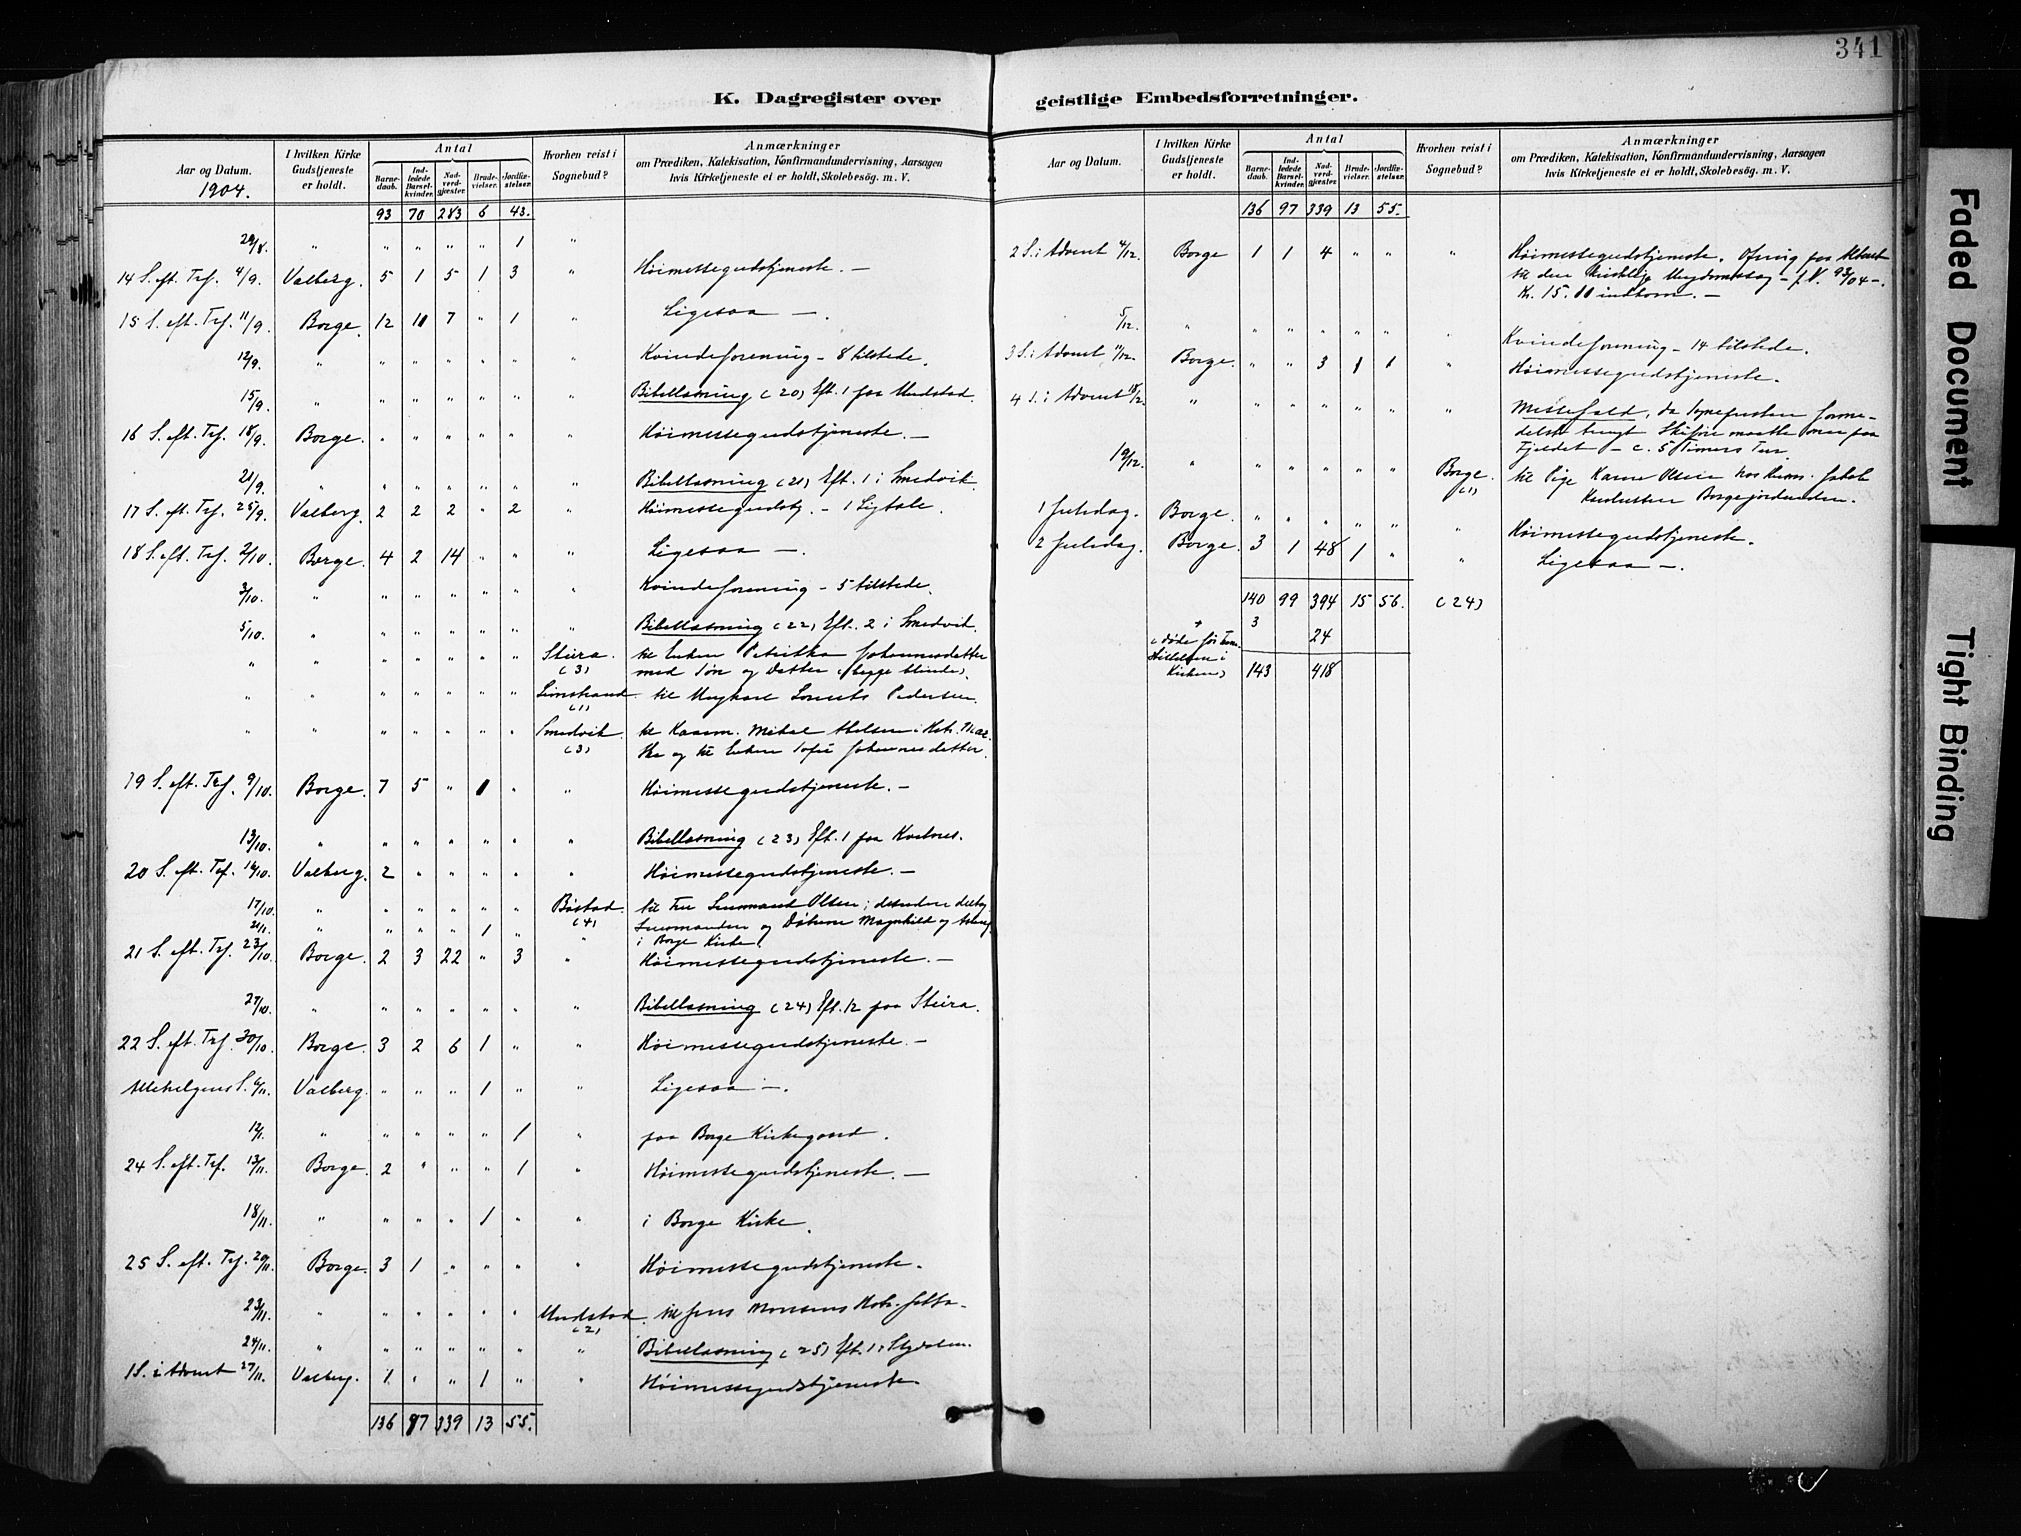 341
K. Dagregister over
geistlige Embedsforretninger.
Aar og Datum.
1904.
I hvilken Kirke Gudstjeneste er holdt.
Antal
Barnedaab.
Indledede Barselkvinder.
Nadverdgjæster.
Brudevielser.
Jordfæstelser.
Hvorhen reist i Sognebud?
Anmærkninger
om Prædiken, Katekisation, Konfirmandundervisning, Aarsagen
hvis Kirketjeneste ei er holdt, Skolebesøg. m. V.
93 70 283 6 43.
29/8. " " " " " 1 "
14 S. eft. Tref. 4/9. Valberg. 5 1 5 1 3 " Høimessegudstjeneste. —
15 S. eft. Tref. 11/9. Borge. 12 10 7 " 1 " Ligesaa —.
12/9. " " " " " " " Kvindeforening - 8 tilstede.
15/9. " " " " " " " Bibellæsning (20) Eft. 1 paa Undstad.
16 S. eft. Tref. 18/9. Borge. " " " " " " Høimessegudstjeneste. —
21/9. " " " " " " " Bibellæsning (21) Eft. 1 i Smedvik.
17 S. eft. Tref. 25/9. Valberg. 2 2 2 " 2 " Høimessegudstj. - 1 Ligtale.
18 S. eft. Tref. 2/10. Borge. 4 2 14 " " " Ligesaa —.
3/10. " " " " " " " Kvindeforening - 5 tilstede.
5/10. " " " " " " " Bibellæsning (22) Eft. 2 i Smedvik.
" " " " " " " Steira. (3) til Enken Petrikka Johannesdatter
med Søn og Datter (begge blinde).
" " " " " " " (1) til Ungkarl Pedersen.
" " " " " " " Smedvik. (3) til
og til Enken Sofie Johannesdatter.
19 S. eft. Tref. 9/10. Borge. 7 5 " 1 " " Høimessegudstjeneste. —
13/10. " " " " " " " Bibellæsning (23) Eft. 1 paa Kvalnes.
20 S. eft. Tref. 16/10. Valberg. 2 " " " " " Høimessegudstjeneste. —
17/10. " " " " " " Bøstad. (4) til Fru Lensmand Olsen;
" " " " 1 " " Lensmanden og Døtrene Magnhild og
i Borge Kirke.
21 S. eft. Tref. 23/10. Borge. 2 3 22 " 3 " Høimessegudstjeneste. —
27/10. " " " " " " " Bibellæsning (24) Eft. 12 paa Steira.
22 S. eft. Tref. 30/10. Borge. 3 2 6 1 " " Høimessegudstjeneste. —
Allehelgens S. 6/11. Valberg. " " " 1 " " Ligesaa —.
" " " " " 1 " paa Borge Kirkegaard.
24 S. eft. Tref. 13/11. Borge. 2 " " " 1 " Høimessegudstjeneste. —
18/11. " " " " 1 " " i Borge Kirke.
25 S. eft. Tref. 20/11. Borge. 3 1 " " " " Høimessegudstjeneste.
23/11. " " " " " " Undstad. (2) til Jens Monsens
24/11. " " " " " " " Bibellæsning (25) Eft. 1 i
1 S. i Advent 27/11. Valberg. 1 " " 1 " " Høimessegudstjeneste.
136 97 339 13 55.
Aar og Datum.
I hvilken Kirke Gudstjeneste er holdt.
Antal
Barnedaab.
Indledede Barselkvinder.
Nadverdgjæster.
Brudevielser.
Jordfæstelser.
Hvorhen reist i Sognebud?
Anmærkninger
om Prædiken, Katekisation, Konfirmandundervisning, Aarsagen
hvis Kirketjeneste ei er holdt, Skolebesøg. m. V.
136 97 339 13 55.
2 S. i Advent 4/12. Borge 1 1 4 " " " Høimessegudstjeneste. Ofring paa Alteret
til den kirkelige Ungdomssag - f. V. 93/04 -.
Kr. 15.00 indkom. —
5/12. " " " " " " " Kvindeforening - 14 tilstede.
3 S. i Advent 11/12. Borge. " " 3 1 1 " Høimessegudstjeneste.
4 S. i Advent 18/12. " " " " " " " Messefald, da Sognepresten forme-
delst tungt Skiføre maatte over paa
Fjeldet - c. 5 Timers Tur.
19/12. " " " " " " Borge. (1) til Pige Olsen hos Jakob
Borgejordenden.
1 Juledag. Borge. " " " " " " Høimessegudstjeneste.
2 Juledag. Borge. 3 1 48 1 " " Ligesaa —.
140 99 394 15 56. (24)
3 24
(døde før Frem-
stillelsen i
Kirken)
143 418
Faded Document
Tight Binding